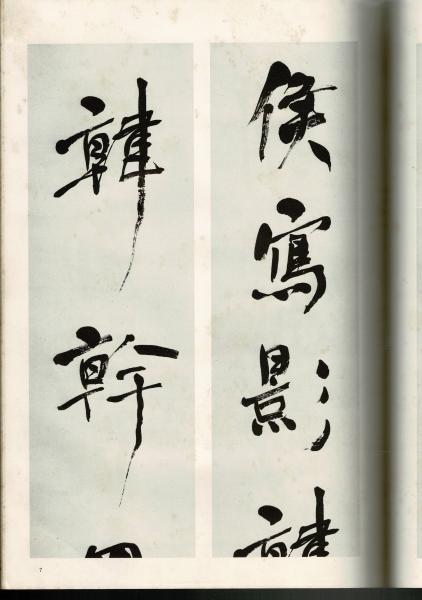 侯寫影韓
韓幹
7